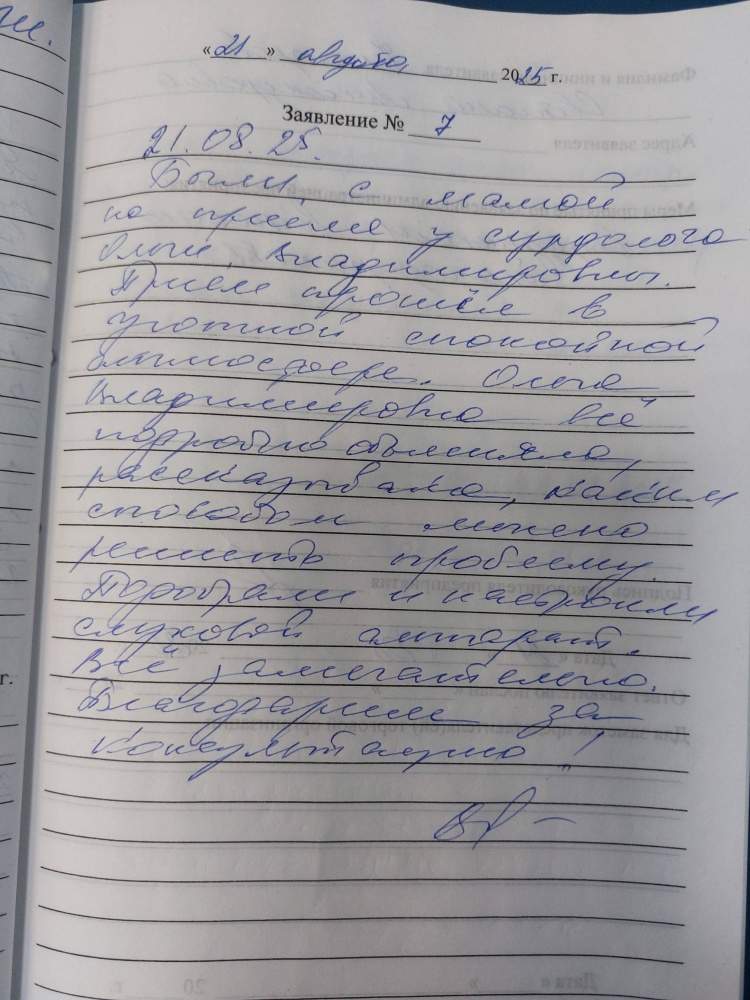 « 21 » августа 2025 г.
Заявление № 7
21.08.25.
Были с мамой
на приёме у сурдолога
Ольги Владимировны.
Приём прошёл в
уютной спокойной
атмосфере. Ольга
Владимировна всё
подробно объясняла,
рассказывала, каким
способом можно
решить проблему.
Подобрали и настроили
слуховой аппарат.
Всё замечательно.
Благодарим за
консультацию!